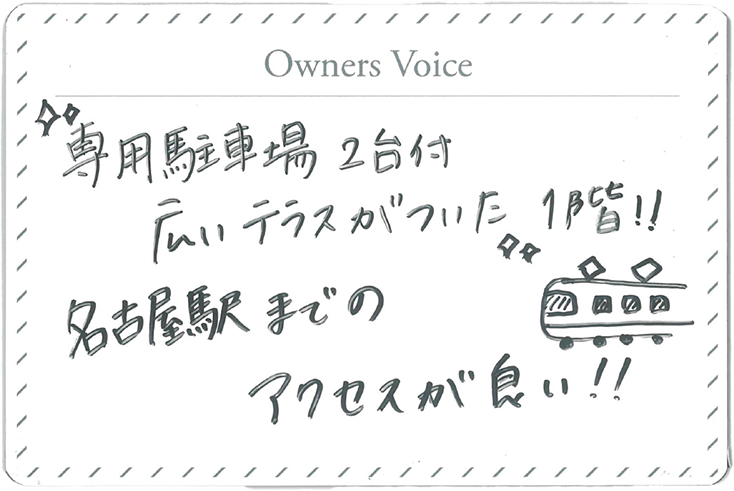 Owners Voice
専用駐車場 2台付
広いテラスがついた 1階!!
名古屋駅までの
アクセスが良い!!